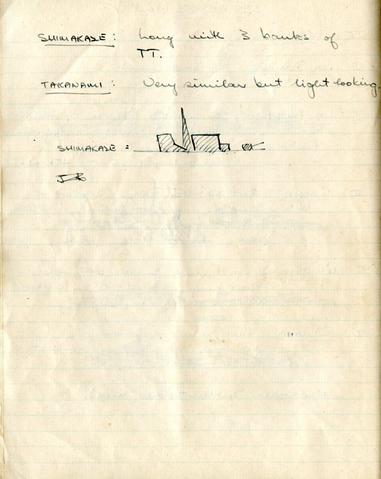 SHIMAKAZE: Long with 3 banks of
TT.
TAKANAMI: Very similar but light looking.
SHIMAKAZE: